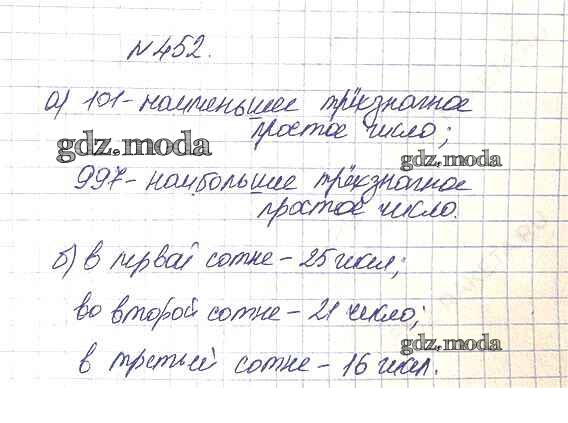 №452.
а) 101-наименьшее трёхзначное
простое число;
gdz.moda
gdz.moda
997-наибольшее трёхзначное
простое число.
б) в первой сотне - 25 чисел;
во второй сотне - 21 число;
gdz.moda
в третьей сотне - 16 чисел.